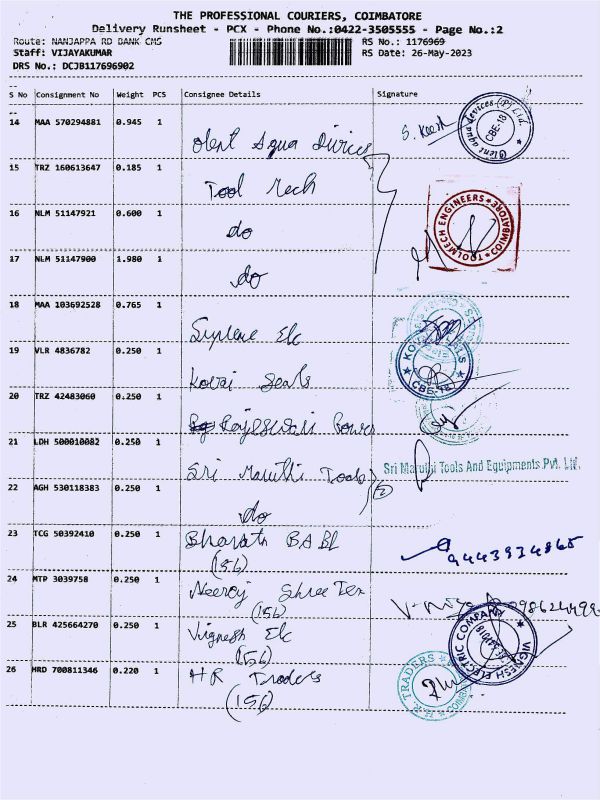 THE PROFESSIONAL COURIERS, COIMBATORE
Delivery Runsheet - PCX - Phone No.:0422-3505555 - Page No.:2
Route: NANJAPPA RD DANK CMS RS No.: 1176969
Staff: VIJAYAKUMAR RS Date: 26-May-2023
DRS No.: DCJB117696902
S No Consignment No Weight PCS Consignee Details Signature
14 MAA 570294881 0.945 1
Olent Aqua S. Keesh
Olent aqua devices (P) Ltd. CBE-18
15 TRZ 160613647 0.185 1
Tool Mech
TOOLMECH ENGINEERS COIMBATORE
16 NLM 51147921 0.600 1
do
17 NLM 51147900 1.980 1
do
18 MAA 103692528 0.765 1
Elc
19 VLR 4836782 0.250 1
Kovai Seals
KOVAI SEALS CBE-18
20 TRZ 42483060 0.250 1
Rajeswari Power
21 LDH 500010082 0.250 1
Sri Maruthi Tools
Sri Maruthi Tools And Equipments Pvt. Ltd.
2
22 AGH 530118383 0.250 1
do
23 TCG 50392410 0.250 1
Bharath BABL
(156)
24 MTP 3039758 0.250 1
Neeroj Shree Tex
(156)
25 BLR 425664270 0.250 1
Vignesh Elc
(156)
VIGNESH ELECTRIC COMPANY
26 HRD 700811346 0.220 1
HR Traders
(156)
TRADERS